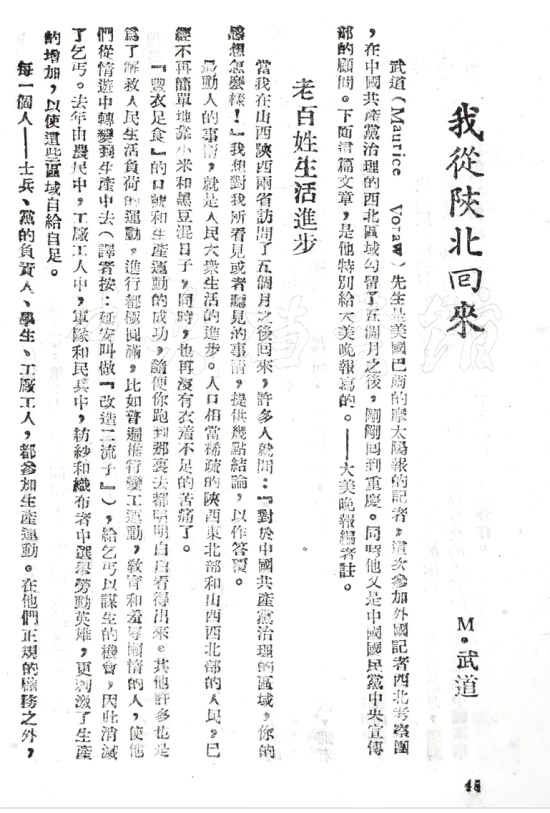 我從陝北回來
M·武道
武道(Maurice Voraw)先生是美國巴爾的摩太陽報的記者,這次參加外國記者西北考察團
,在中國共產黨治理的西北區域勾留了五個月之後,剛剛回到重慶。同時他又是中國國民黨中央宣傳
部的顧問。下面這篇文章,是他特別給大美晚報寫的。——大美晚報編者註。
老百姓生活進步
當我在山西陝西兩省訪問了五個月之後回來,許多人就問:『對於中國共產黨治理的區域,你的
感想怎麼樣!』我想對我所看見或者聽見的事情,提供幾點結論,以作答覆。
最動人的事情,就是人民大衆生活的進步。人口相當稀疏的陝西東北部和山西西北部的人民,已
經不再簡單地靠小米和黑豆混日子,同時,也再沒有衣着不足的苦痛了。
『豐衣足食』的口號和生產運動的成功,隨便你跑到那裏去都明明白白看得出來。其他許多也是
爲了解救人民生活負荷的運動,進行都極圓滿,比如普遍推行變工運動,敎育和羞辱懶惰的人,使他
們從惰遊中轉變到生產中去(譯者按:延安叫做『改造二流子』),給乞丐以謀生的機會,因此消滅
了乞丐。去年由農民中,工廠工人中,軍隊和民兵中,紡紗和織布者中選舉勞動英雄,更刺激了生產
的增加,以使這些區域自給自足。
每一個人——士兵、黨的負責人、學生、工廠工人,都參加生產運動。在他們正規的職務之外,
45